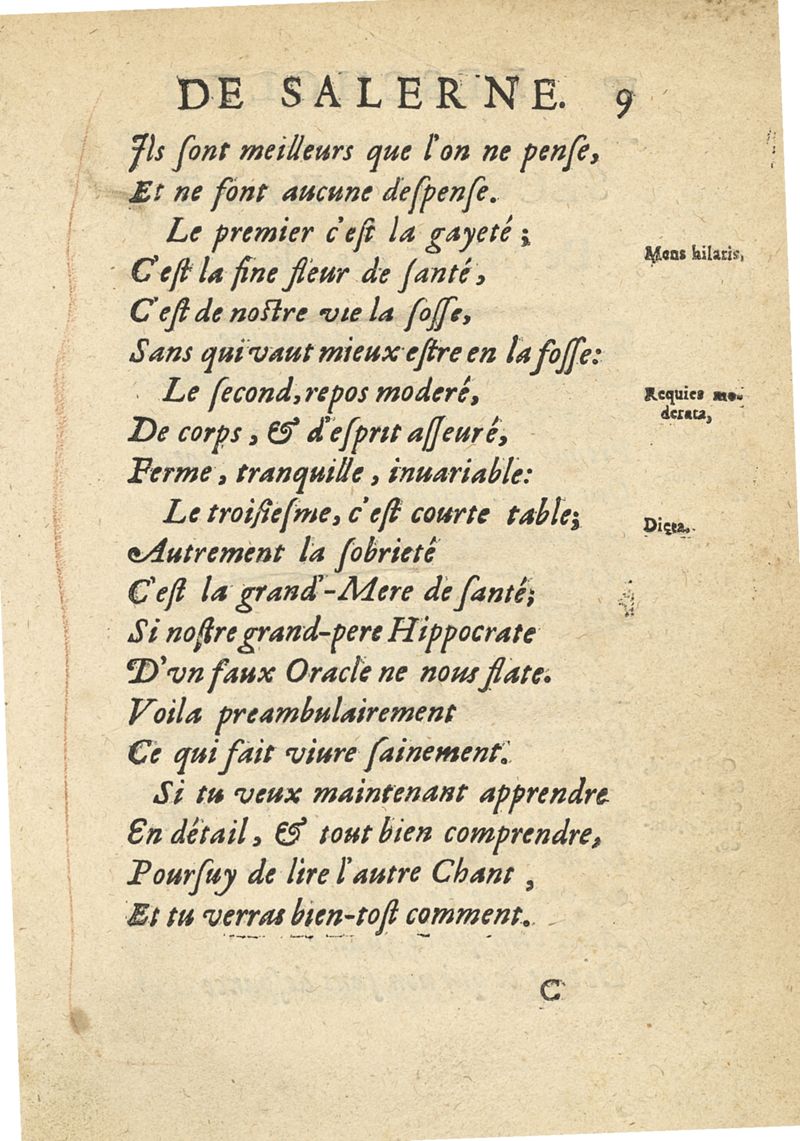 DE SALERNE. 9
Ils ſont meilleurs que l'on ne penſe,
Et ne font aucune deſpenſe.
Le premier c'eſt la gayeté;
Mens hilaris,
C'eſt la fine fleur de ſanté,
C'eſt de noſtre vie la ſoſſe,
Sans qui vaut mieux eſtre en la foſſe:
Le ſecond, repos moderé,
Requies mo-
derata,
De corps, & d'eſprit aſſeuré,
Ferme, tranquille, inuariable:
Le troiſieſme, c'eſt courte table;
Diæta.
Autrement la ſobrieté
C'eſt la grand'-Mere de ſanté;
Si noſtre grand-pere Hippocrate
D'vn faux Oracle ne nous flate.
Voila preambulairement
Ce qui fait viure ſainement.
Si tu veux maintenant apprendre
En détail, & tout bien comprendre,
Pourſuy de lire l'autre Chant,
Et tu verras bien-toſt comment.
C